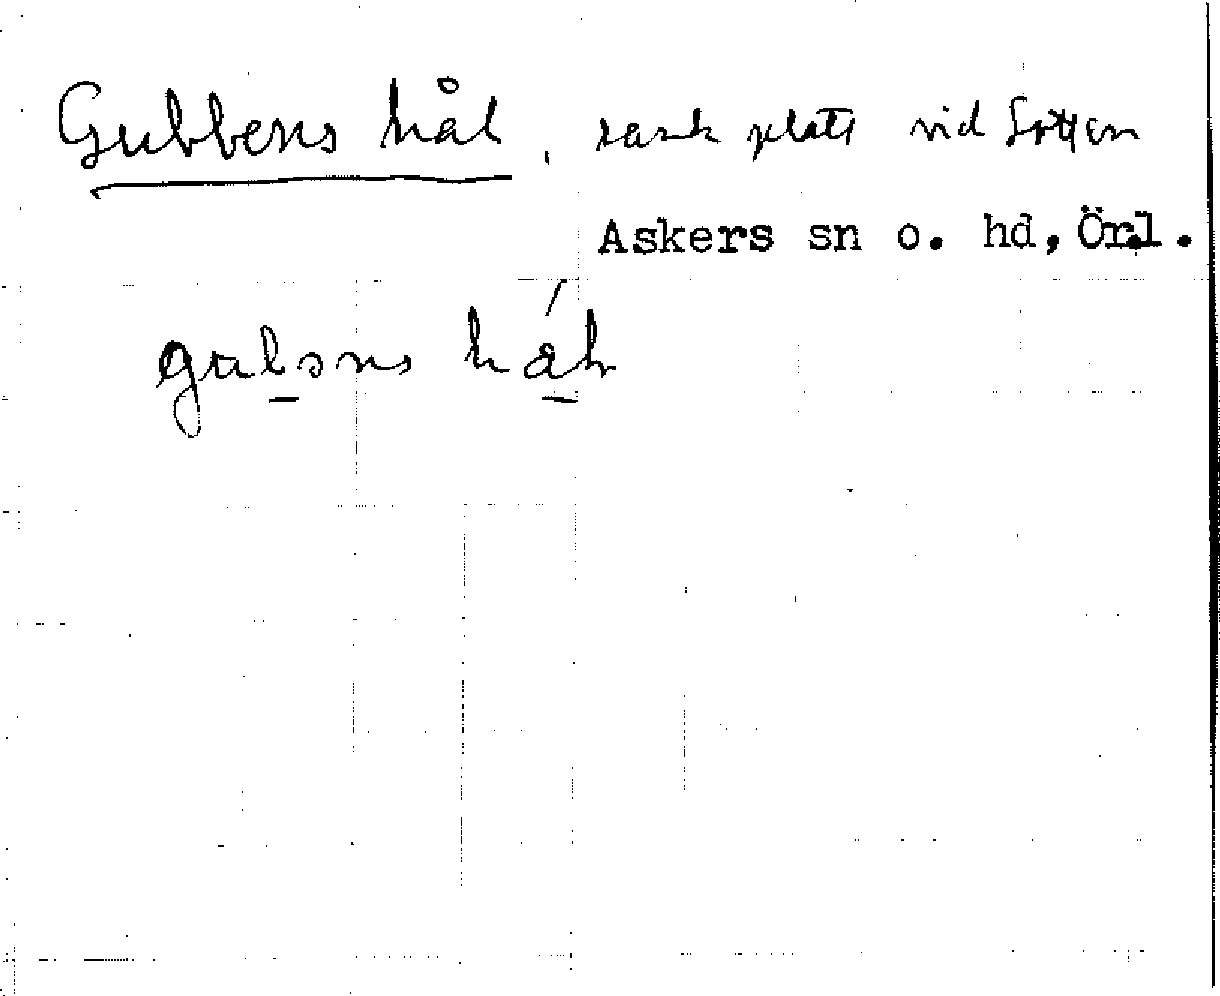 Gubbens hål, sank plats vid Sotten
Askers sn o. hd, Örl.